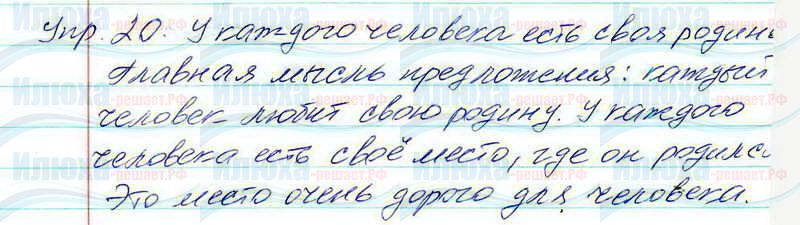 Упр. 20. У каждого человека есть своя родин
Главная мысль предложения: каждый
человек любит свою родину. У каждого
человека есть своё место, где он родилс
Это место очень дорого для человека.